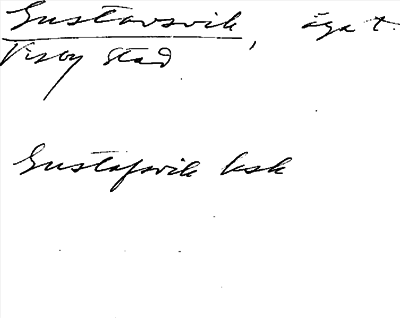 Gustavsvik, äga t.
Visby stad
Gustafsvik hsk